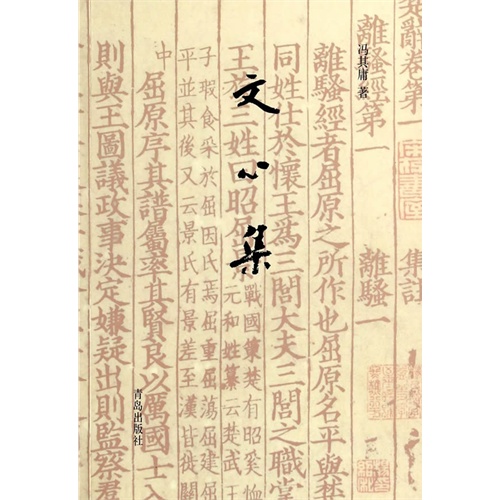 文心集
冯其庸 著
青岛出版社
楚辭卷第一 集註
離騷經第一 離騷一
離騷經者屈原之所作也屈原名平與楚
同姓仕於懷王爲三閭大夫三閭之職掌
王族三姓曰昭屈景
戰國策楚有昭奚恤
元和姓纂云楚武
子瑕食采於屈因氏焉屈重屈蕩屈建屈
平並其後又云景氏有景差至漢皆徙關
中
屈原序其譜屬率其賢良以厲國士入
則與王圖議政事決定嫌疑出則監察羣